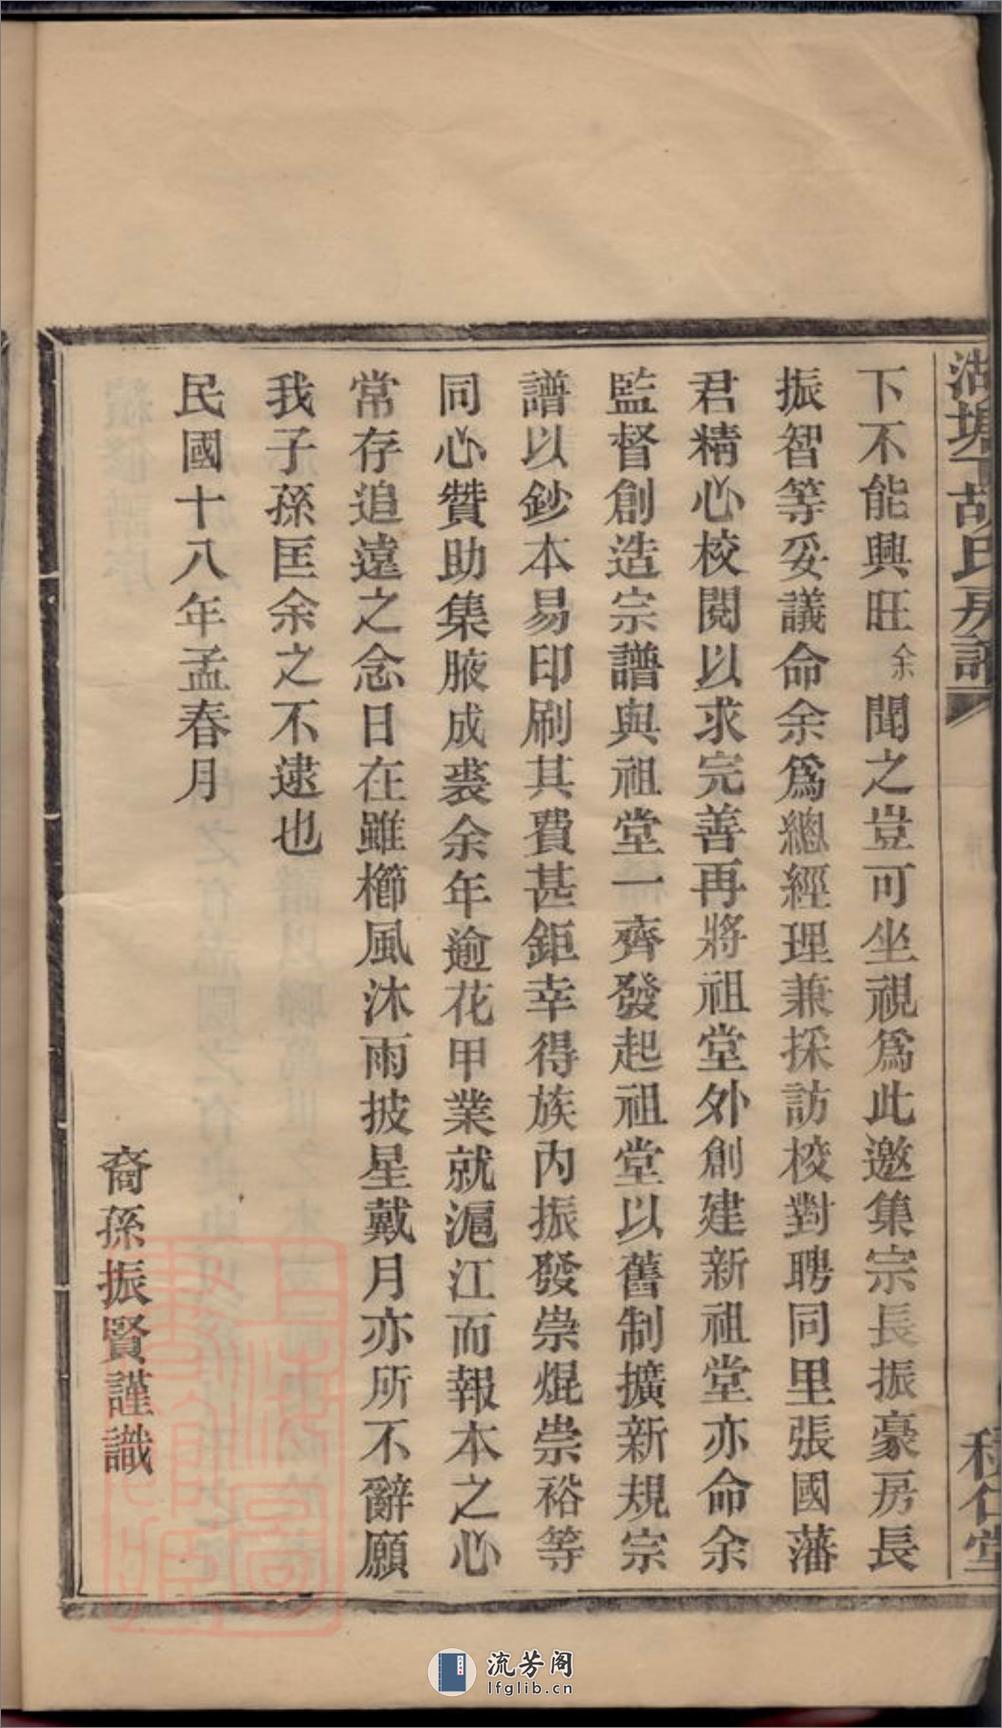 湖塘下胡氏房譜
積仁堂
下不能興旺余聞之豈可坐視爲此邀集宗長振豪房長
振智等妥議命余爲總經理兼採訪校對聘同里張國藩
君精心校閱以求完善再將祖堂外創建新祖堂亦命余
監督創造宗譜與祖堂一齊發起祖堂以舊制擴新規宗
譜以鈔本易印刷其費甚鉅幸得族內振發崇焜崇裕等
同心贊助集腋成裘余年逾花甲業就滬江而報本之心
常存追遠之念日在雖櫛風沐雨披星戴月亦所不辭願
我子孫匡余之不逮也
民國十八年孟春月
裔孫振賢謹識
上海圖書館藏
流芳阁
lfglib.cn